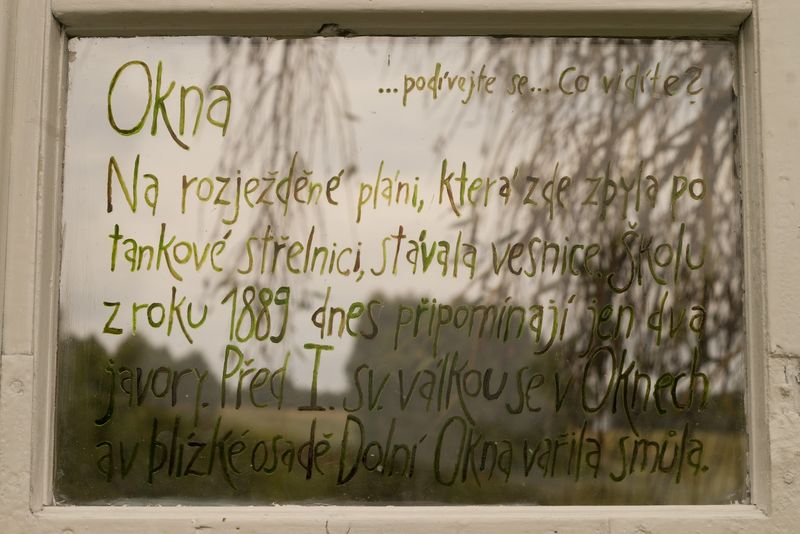 Okna ...podívejte se... Co vidíte?
Na rozježděné pláni, která zde zbyla po
tankové střelnici, stávala vesnice. Školu
z roku 1889 dnes připomínají jen dva
javory. Před I. sv. válkou se v Oknech
a v blízké osadě Dolní Okna vařila smůla.